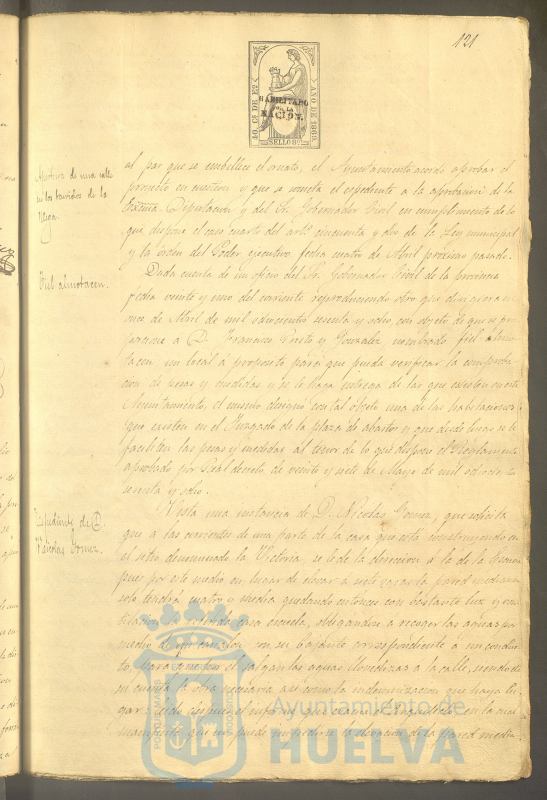 121
10 Cs DE Eº
AÑO DE 1869.
HABILITADO
POR LA
NACION.
SELLO 9º
Apertura de una calle
en los barridos de la
Vega.
al par que se embellece el ornato, el Ayuntamiento acordó aprobar el
proyecto en cuestion y que se remita el expediente a la aprobacion de la
Excma. Diputacion y del Sr. Gobernador Civil en cumplimiento de lo
que dispone el caso cuarto del artº cincuenta y dos de la Ley municipal
y la órden del Poder ejecutivo fecha cuatro de Abril próximo pasado.
Fiel almotacen.
Dada cuenta de un oficio del Sr. Gobernador Civil de la provincia
fecha veinte y uno del corriente reproduciendo otro que dirigiera en
once de Abril de mil ochocientos sesenta y ocho, con objeto de que se pro-
porcione a D. Francisco Prieto y Gonzalez nombrado fiel almo-
tacen un local á propósito para que pueda verificar la comproba-
cion de pesas y medidas y se le haga entrega de las que existen en este
Ayuntamiento, el mismo designó con tal objeto una de las habitaciones
que existen en el Juzgado de la plaza de abastos y que desde luego se le
faciliten las pesas y medidas al tenor de lo que dispone el Reglamento
aprobado por Real decreto de veinte y siete de Mayo de mil ochocientos
sesenta y ocho.
Expediente de D.
Nicolas Gomez.
Vista una instancia de D. Nicolas Gomez, que solicita
que a las corrientes de una parte de la casa que está construyendo en
el sitio denominado la Victoria, se le dé la direccion á la de la
pues por este medio en lugar de elevar a siete varas la pared medianera
solo tendrá cuatro y media quedando entonces con bastante luz y ven-
tilacion la referida casa escuela, obligandose a recoger las aguas por
medio de un canalon con su bajante correspondiente a un conduc-
to para que por él salgan las aguas llovedizas a la calle, siendo de
su cuenta la obra necesaria asi como la indemnizacion que haya lu-
gar: leido despues el informe que
manifiesta que no puede impedirse la elevacion de la pared media-
PORTUS MARIS
CUSTODIA
Ayuntamiento de
HUELVA